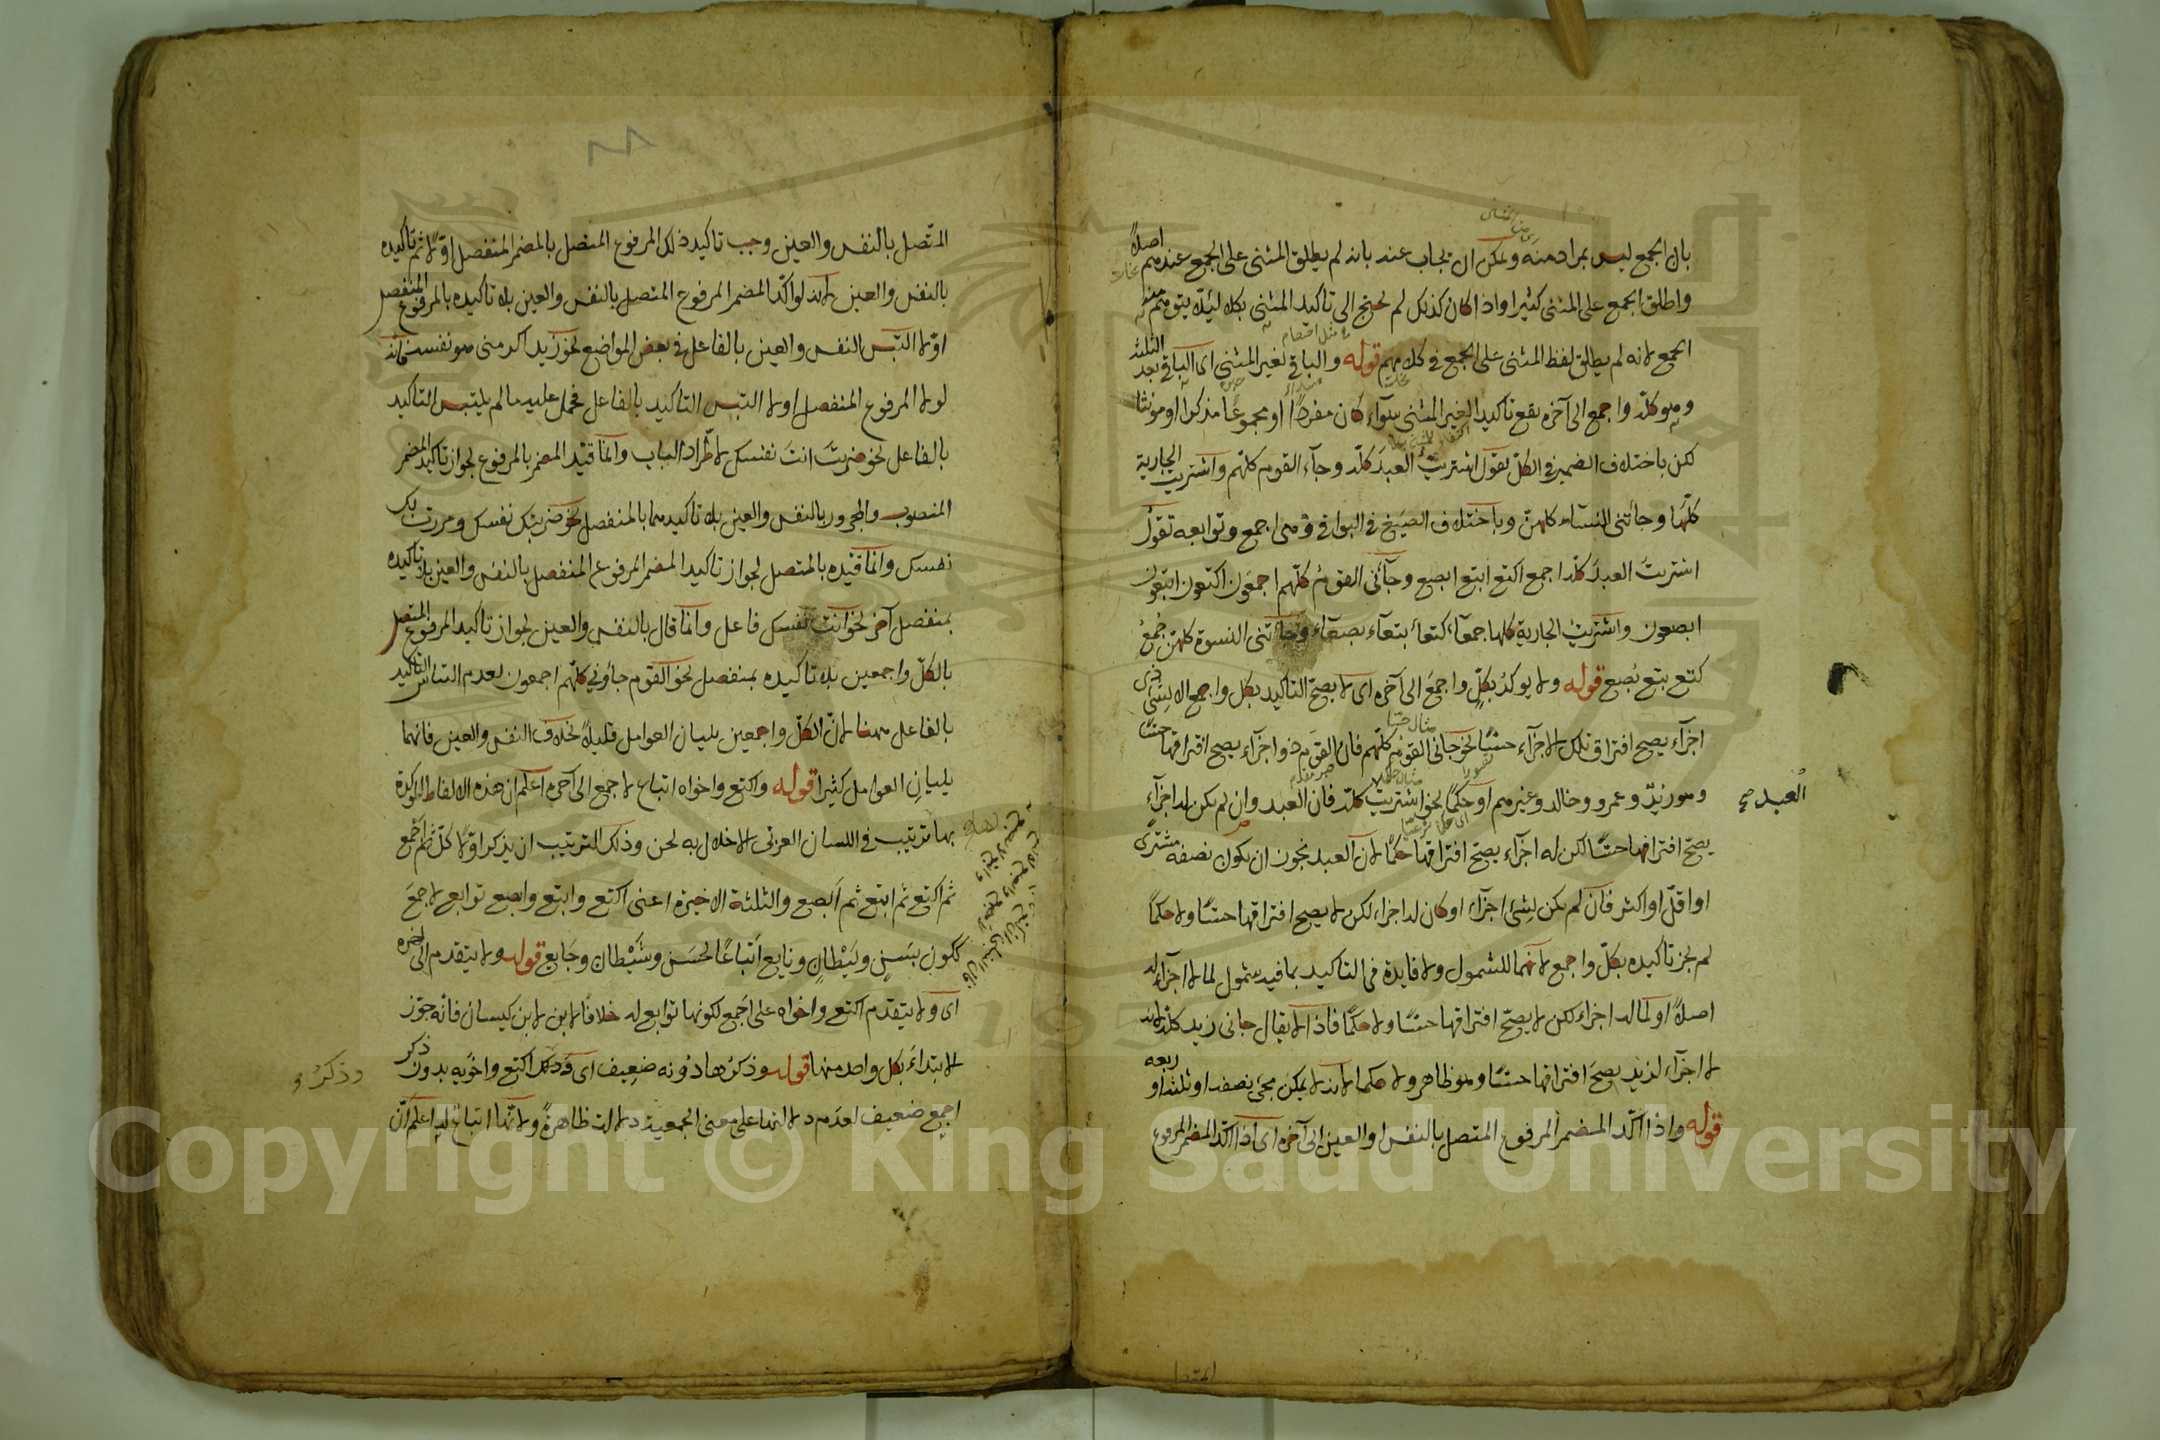 بان الجمع ليس بمراد منه ويمكن ان يجاب عنه بانه لم يطلق المثنى على الجمع عندهم اصلاً
واطلق الجمع على المثنى كثيرا واذا كان كذلك لم يحتج الى تأكيد المثنى بكله لئلا يتوهم منه
الجمع لانه لم يطلق لفظ المثنى على الجمع في كلامهم قوله والباقي لغير المثنى اى الباقي بعد الثلثة
وهو كله واجمع الى آخره يقع تاكيد الغير المثنى سواء كان مفردًا او مجموعًا مذكرا او مونثا
لكن باختلاف الضمير في الكل تقول اشتريت العبدَ كلّه وجاء القوم كلّهم واشتريت الجارية
كلّها وجائتنى النسآء كلهنّ وباختلاف الصيَغ في البواقي وهى اجمع وتوابعه تقولُ
اشتريتُ العبدَ كلّه اجمع اكتع ابتع ابصع وجآئنى القومُ كلّهم اجمعون اكتعون ابتعون
ابصعون واشتريتُ الجارية كلها جمعآء كتعآء بتعآء بصعآء وجآئتنى النسوة كلهنّ جُمَعُ
كتع بتع بُصع قوله ولا يوكدُ بكلٍّ واجمعُ الى آخره اى لا يصحّ التاكيد بكل واجمع الا لشئ ذى
اجزآء يصح افتراق تلك الاجزآء حسًّا نحو جائى القوم كلّهم فان القوم ذو اجزآء يصح افتراقها حسًّا
وهو زيدٌ وعمرو وخالد وغيرهم او حكمًا نحو اشتريت كلّه فان العبد وان لم يكن له اجزاءٌ
العبد صح
يصحّ افتراقها حسًّا لكن له اجزآء يصحّ افتراقها حكمًا لان العبد يجوز ان يكون نصفه مشترى
او اقلّ او اكثر فان لم يكن لشئ اجزآء او كان له اجزاء لكن لا يصح افتراقها حسًّا ولا حكمًا
لم يجز تاكيده بكلّ واجمع لانهما للشمول ولا فايدة في التاكيد بما فيه شمول لما لا اجزآء له
اصلاً او لما له اجزاء لكن لا يصحّ افتراقها حسًّا ولا حكمًا فاذا لا يقال جائى زيد كلّه لانه
لا اجزآء لزيد يصحّ افتراقها حسًّا وهو ظاهر ولا حكما لانه لا يمكن مجئ نصفه او ثلثه او ربعه
قوله واذا اكّد المضمر المرفوع المتصل بالنفس والعين الى آخره اى اذا اكّد المضمر المرفوع
المتّصل بالنفس والعين وجب تاكيد ذلك المرفوع المتصل بالمضمر المنفصل اوّلا ثم تاكيده
بالنفس والعين لانه لو اكّد المضمر المرفوع المتصل بالنفس والعين بلا تاكيده بالمرفوع المنفصل
اوّلا التبس النفس والعين بالفاعل في بعض المواضع نحو زيد اكرمنى هو نفسه فانه
لولا المرفوع المنفصل اولا التبس التاكيد بالفاعل فحمل عليه ما لم يلتبس التاكيد
بالفاعل نحو ضربتَ انتَ نفسك لاطّراد الباب وانما قيّد المضمر بالمرفوع لجواز تاكيد المضمر
المنصوب والمجرور بالنفس والعين بلا تاكيدهما بالمنفصل نحو ضربتك نفسك ومررت بك
نفسك وانما قيّده بالمتصل لجواز تاكيد المضمر المرفوع المنفصل بالنفس والعين بلا تاكيده
بمنفصل آخر نحو انت نفسك فاعل وانما قال بالنفس والعين لجواز تاكيد المرفوع المتصل
بالكلّ واجمعين بلا تاكيده بمنفصل نحو القوم جاؤني كلّهم اجمعون لعدم التباس التاكيد
بالفاعل ههنا لانّ الكلّ واجمعين يليان العوامل قليلاً بخلاف النفس والعين فانهما
يليان العوامل كثيرا قوله واكتع واخواه اتباع لاجمع الى آخره اعلم ان هذه الالفاظ المؤكدة
بها ترتيب في اللسان العربى الاخلال به لحن وذلك الترتيب ان يذكر اوّلا كلّ ثم اجمع
ثم اكتع ثم ابتع ثم ابصع والثلثة الاخيرة اعنى اكتع وابتع وابصع توابع لاجمَع
ككون بَسَن ولَيْطان ونايع اتباعًا لحَسَن وشَيْطان وجَايع قوله ولا يتقدم الى آخره
اى ولا يتقدم اكتع واخواه على اجمع لكونها توابع له خلافا لابن لابن كيسان فانّه جوّز
الابتداءَ بكل واحد منها قوله وذكرُها دونه ضعيف اى وذلك اكتع واخويه بدون ذكر
وذكرُ
اجمع ضعيف لعدم دلالتها على معنى الجمعية دلالة ظاهرةً ولانّها اتباعٌ له اعلم انّ
Copyright © King Saud University